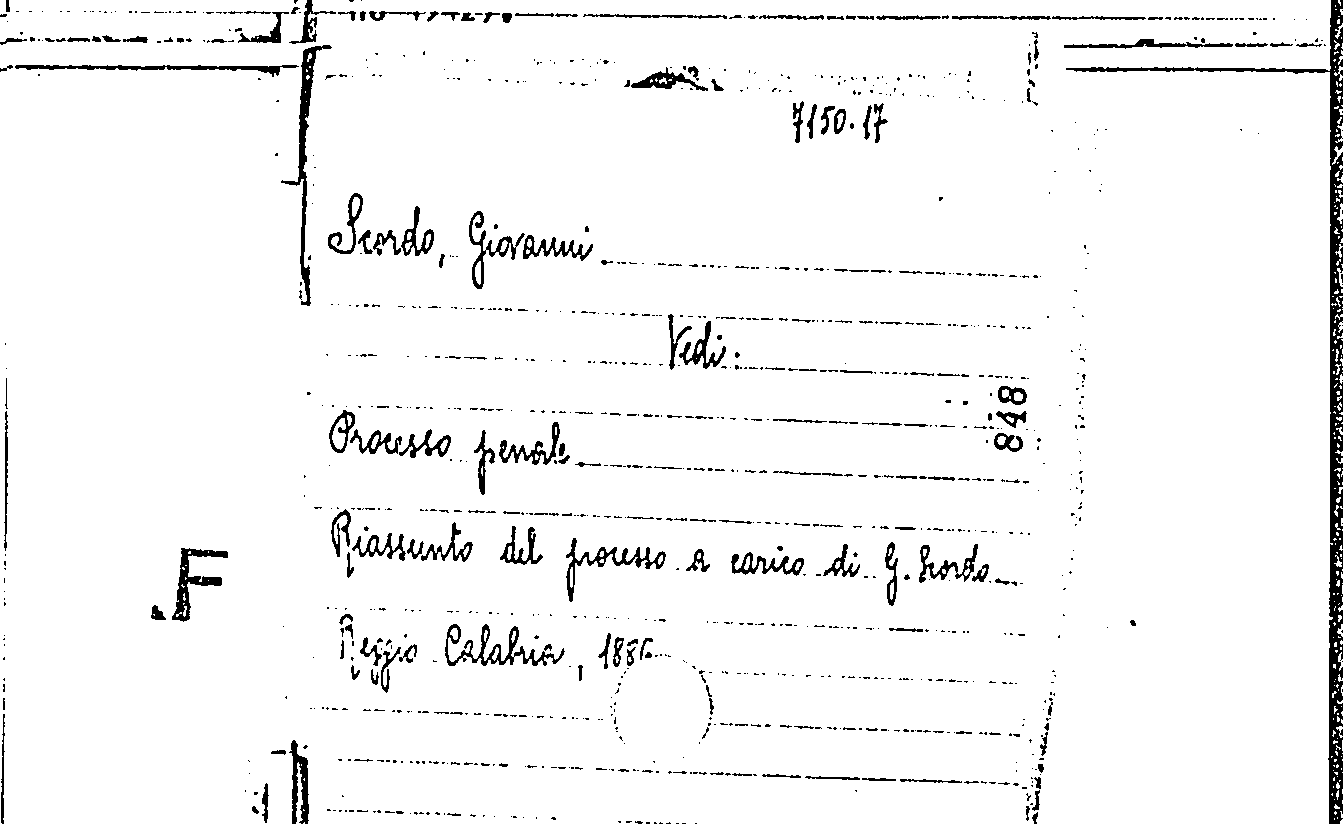 7150.17
Scordo, Giovanni
Vedi:
848
Processo penale
Riassunto del processo a carico di G. Scordo
F
Reggio Calabria, 1886